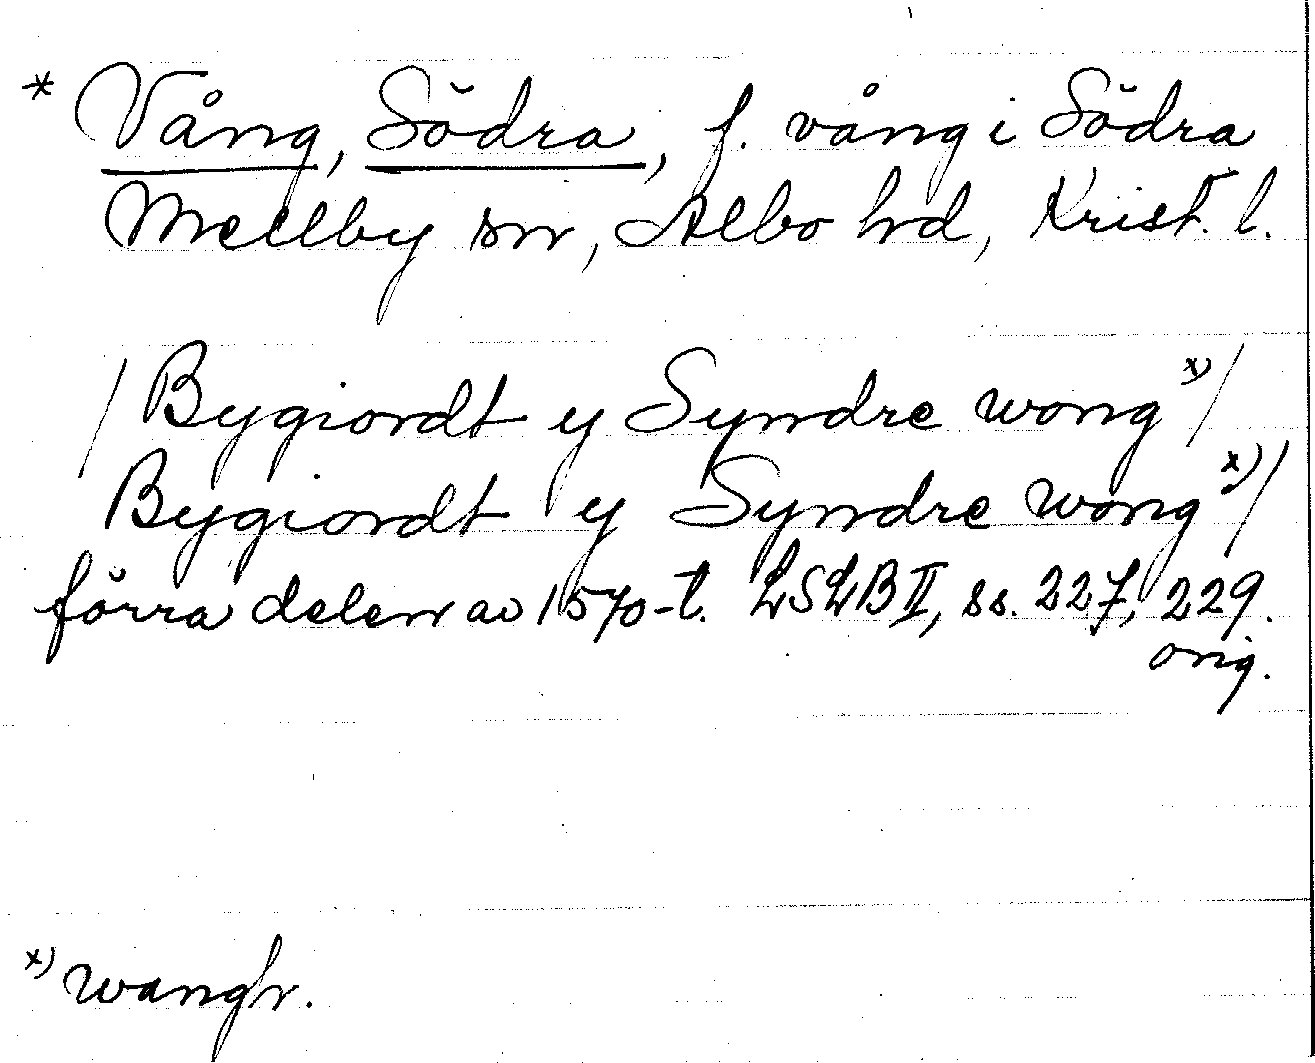 * Vång, Södra, f. vång i Södra
Mellby sn, Albo hd, Krist. l.
/Bygiordt y Syndre wong x)/
Bygiordt y Syndre wong x)/
förra delen av 1570-t. LSLB II, ss. 227, 229.
orig.
x) wangh.